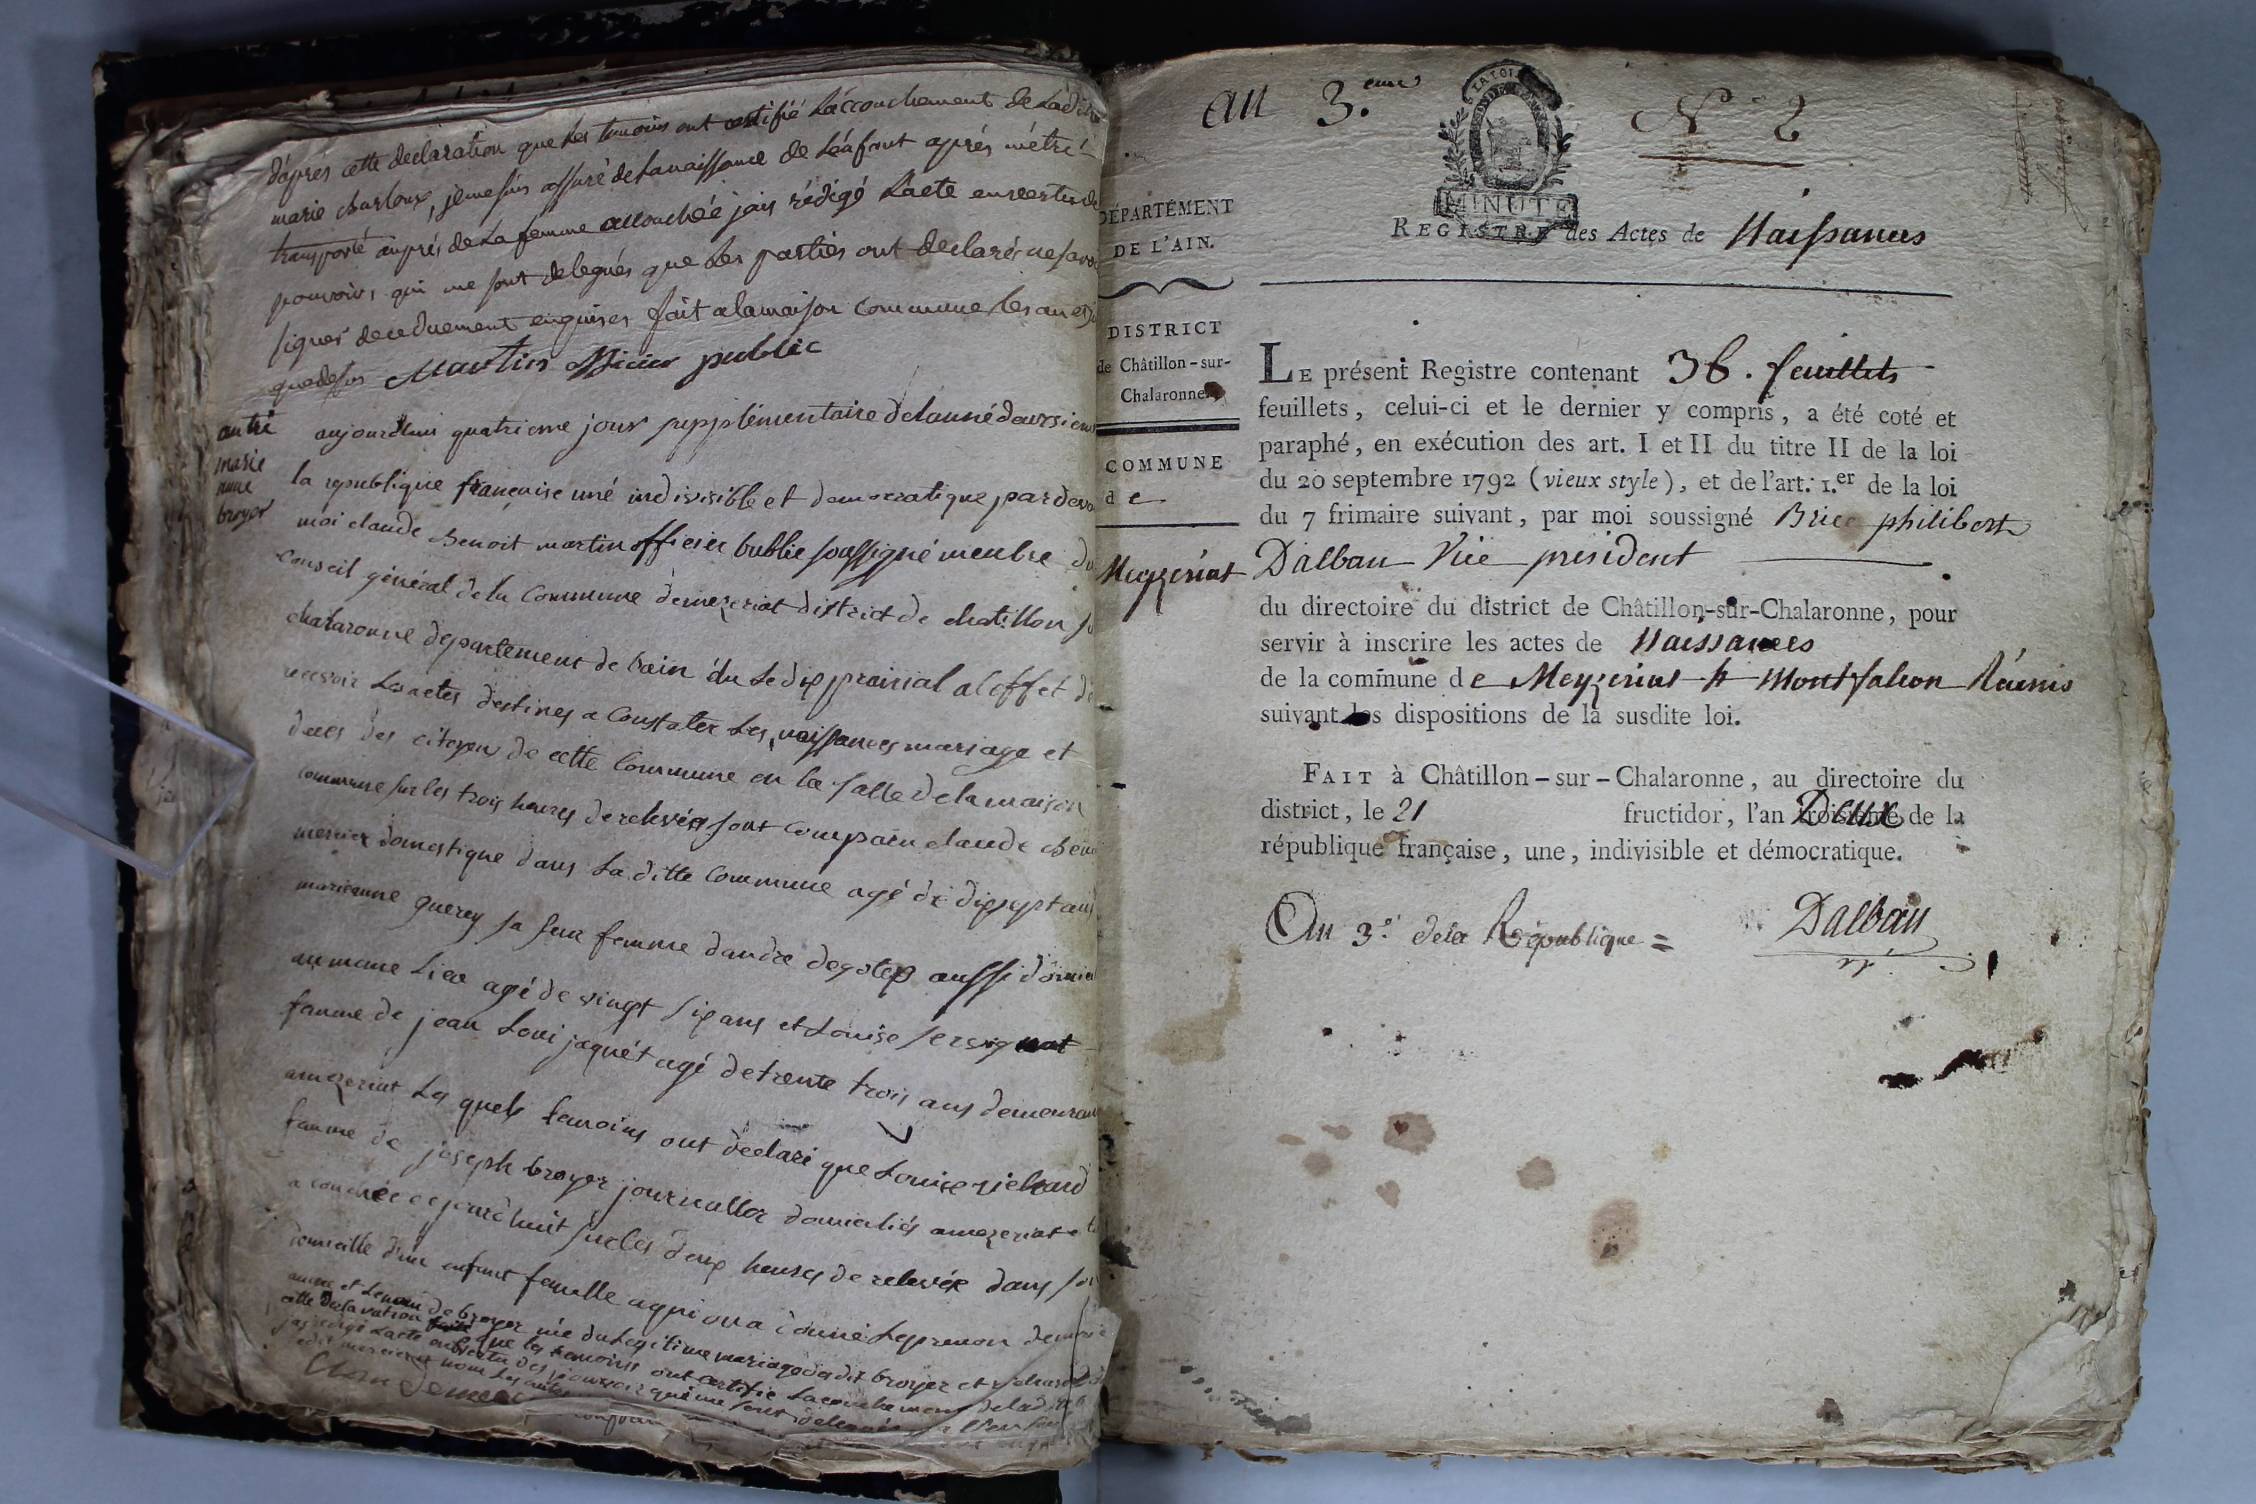 d'aprés cette declaration que les temoins ont certifié Laccouchement de Ladite
marie charloux, jemesuis assuré de Lanaissance de Lénfant aprés métré
transporté auprés de La femme accouchéé jais rédigé Lacte envertu de
pouvoirs qui me sont delegués que Les parties ont declarés ne savoir
signer dece duement enquises fait alamaison commune les an et
quedesus Martin officier public
autre
marie
anne
broyer
aujourdhui quatrieme jour supplémentaire delanné deuxsieme
la republique francaise uné indivisible et democratique pardeva
moi claude benoit martin officier bublic soussigné menbre du
conseil général de la Commune demezeriat district de chatillon su
chalaronne departement de lain élu Le dix prairial aleffet de
recevoir Les actes destines a Constater Les naissances mariage et
deces des citoyens de cette Commune en la salle de la maison
commune sur les trois heures de relevéé sont comparu claude
mercier domestique dans La ditte Commune agé de dixsept ans
marianne querey sa femme dandré aussi domici
aumeme Lieu agé de vingt six ans et Louise
famme de jean Loui jaquét agé de trente trois ans demeurant
amezeriat Les quels temoins ont déclaré que Louise richard
famme de joseph broyer journallier domicaliés amezeriat
acouchéé cejourdhuit sur les deux heures de relevéé dans son
domicille d'un enfant femelle aqui on a donné Le prenon de marie
anne et Lenom de broyer née du Legitime mariage dudit broyer et richard
cette declaration que les temoins ont certifié Lacouchement de ladite
jay redigé Lacte envertu des pouvoir qui me sont delegués
mercier non Les autres
Claude mercier
AN 3.eme
N° 2
LA LOI
MINUTE
DÉPARTEMENT
DE L'AIN.
REGISTRE des Actes de Naissances
DISTRICT
de Châtillon-sur-
Chalaronne.
COMMUNE
de
Meyzériat
LE présent Registre contenant 36. feuillets
feuillets, celui-ci et le dernier y compris, a été coté et
paraphé, en exécution des art. I et II du titre II de la loi
du 20 septembre 1792 (vieux style), et de l'art. 1.er de la loi
du 7 frimaire suivant, par moi soussigné Brice philibert
Dalban Vice président
du directoire du district de Châtillon-sur-Chalaronne, pour
servir à inscrire les actes de Naissances
de la commune de Meyzériat & Montfalcon Réunis
suivant les dispositions de la susdite loi.
FAIT à Châtillon-sur-Chalaronne, au directoire du
district, le 21 fructidor, l'an troisième Deux de la
république française, une, indivisible et démocratique.
An 3.e dela République =
Dalban